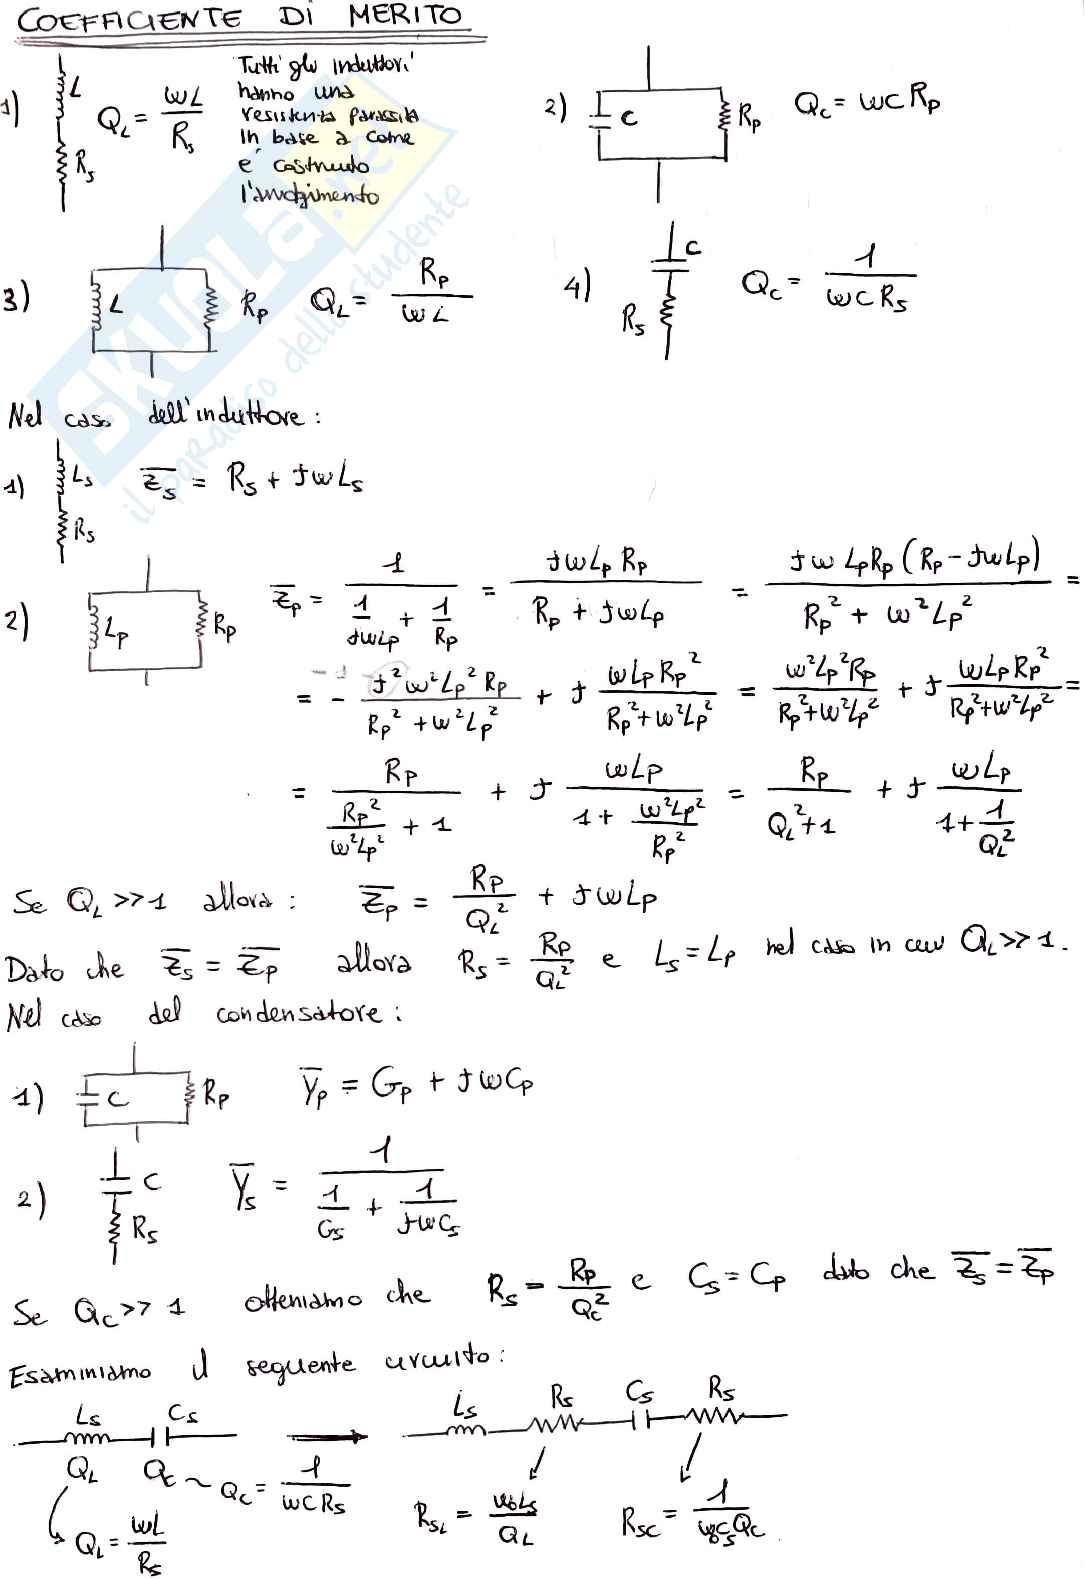 COEFFICIENTE DI MERITO
1) L Rs Q_L = ωL/Rs
Tutti gli induttori
hanno una
resistenza parassita
in base a come
e' costruito
l'avvolgimento
2) C Rp Qc = ωCRp
3) L Rp Q_L = Rp/ωL
4) C Rs Qc = 1/ωCRs
Nel caso dell'induttore:
1) Ls Rs Z̅s = Rs + jωLs
2) Lp Rp Z̅p = 1/(1/jωLp + 1/Rp) = jωLpRp/(Rp + jωLp) = jωLpRp(Rp - jωLp)/(Rp² + ω²Lp²) =
= - j²ω²Lp²Rp/(Rp² + ω²Lp²) + j ωLpRp²/(Rp² + ω²Lp²) = ω²Lp²Rp/(Rp² + ω²Lp²) + j ωLpRp²/(Rp² + ω²Lp²) =
= Rp/(Rp²/ω²Lp² + 1) + j ωLp/(1 + ω²Lp²/Rp²) = Rp/(Q_L² + 1) + j ωLp/(1 + 1/Q_L²)
Se Q_L >> 1 allora: Z̅p = Rp/Q_L² + jωLp
Dato che Z̅s = Z̅p allora Rs = Rp/Q_L² e Ls = Lp nel caso in cui Q_L >> 1.
Nel caso del condensatore:
1) C Rp Y̅p = Gp + jωCp
2) C Rs Y̅s = 1/(1/Gs + 1/jωCs)
Se Qc >> 1 otteniamo che Rs = Rp/Qc² e Cs = Cp dato che Z̅s = Z̅p
Esaminiamo il seguente circuito:
Ls Cs Ls Rs Cs Rs
Q_L Qc Qc = 1/ωCRs R_SL = ω₀Ls/Q_L R_SC = 1/ω₀CsQc
Q_L = ωL/Rs
SKUOLA.net
il paradiso dello studente